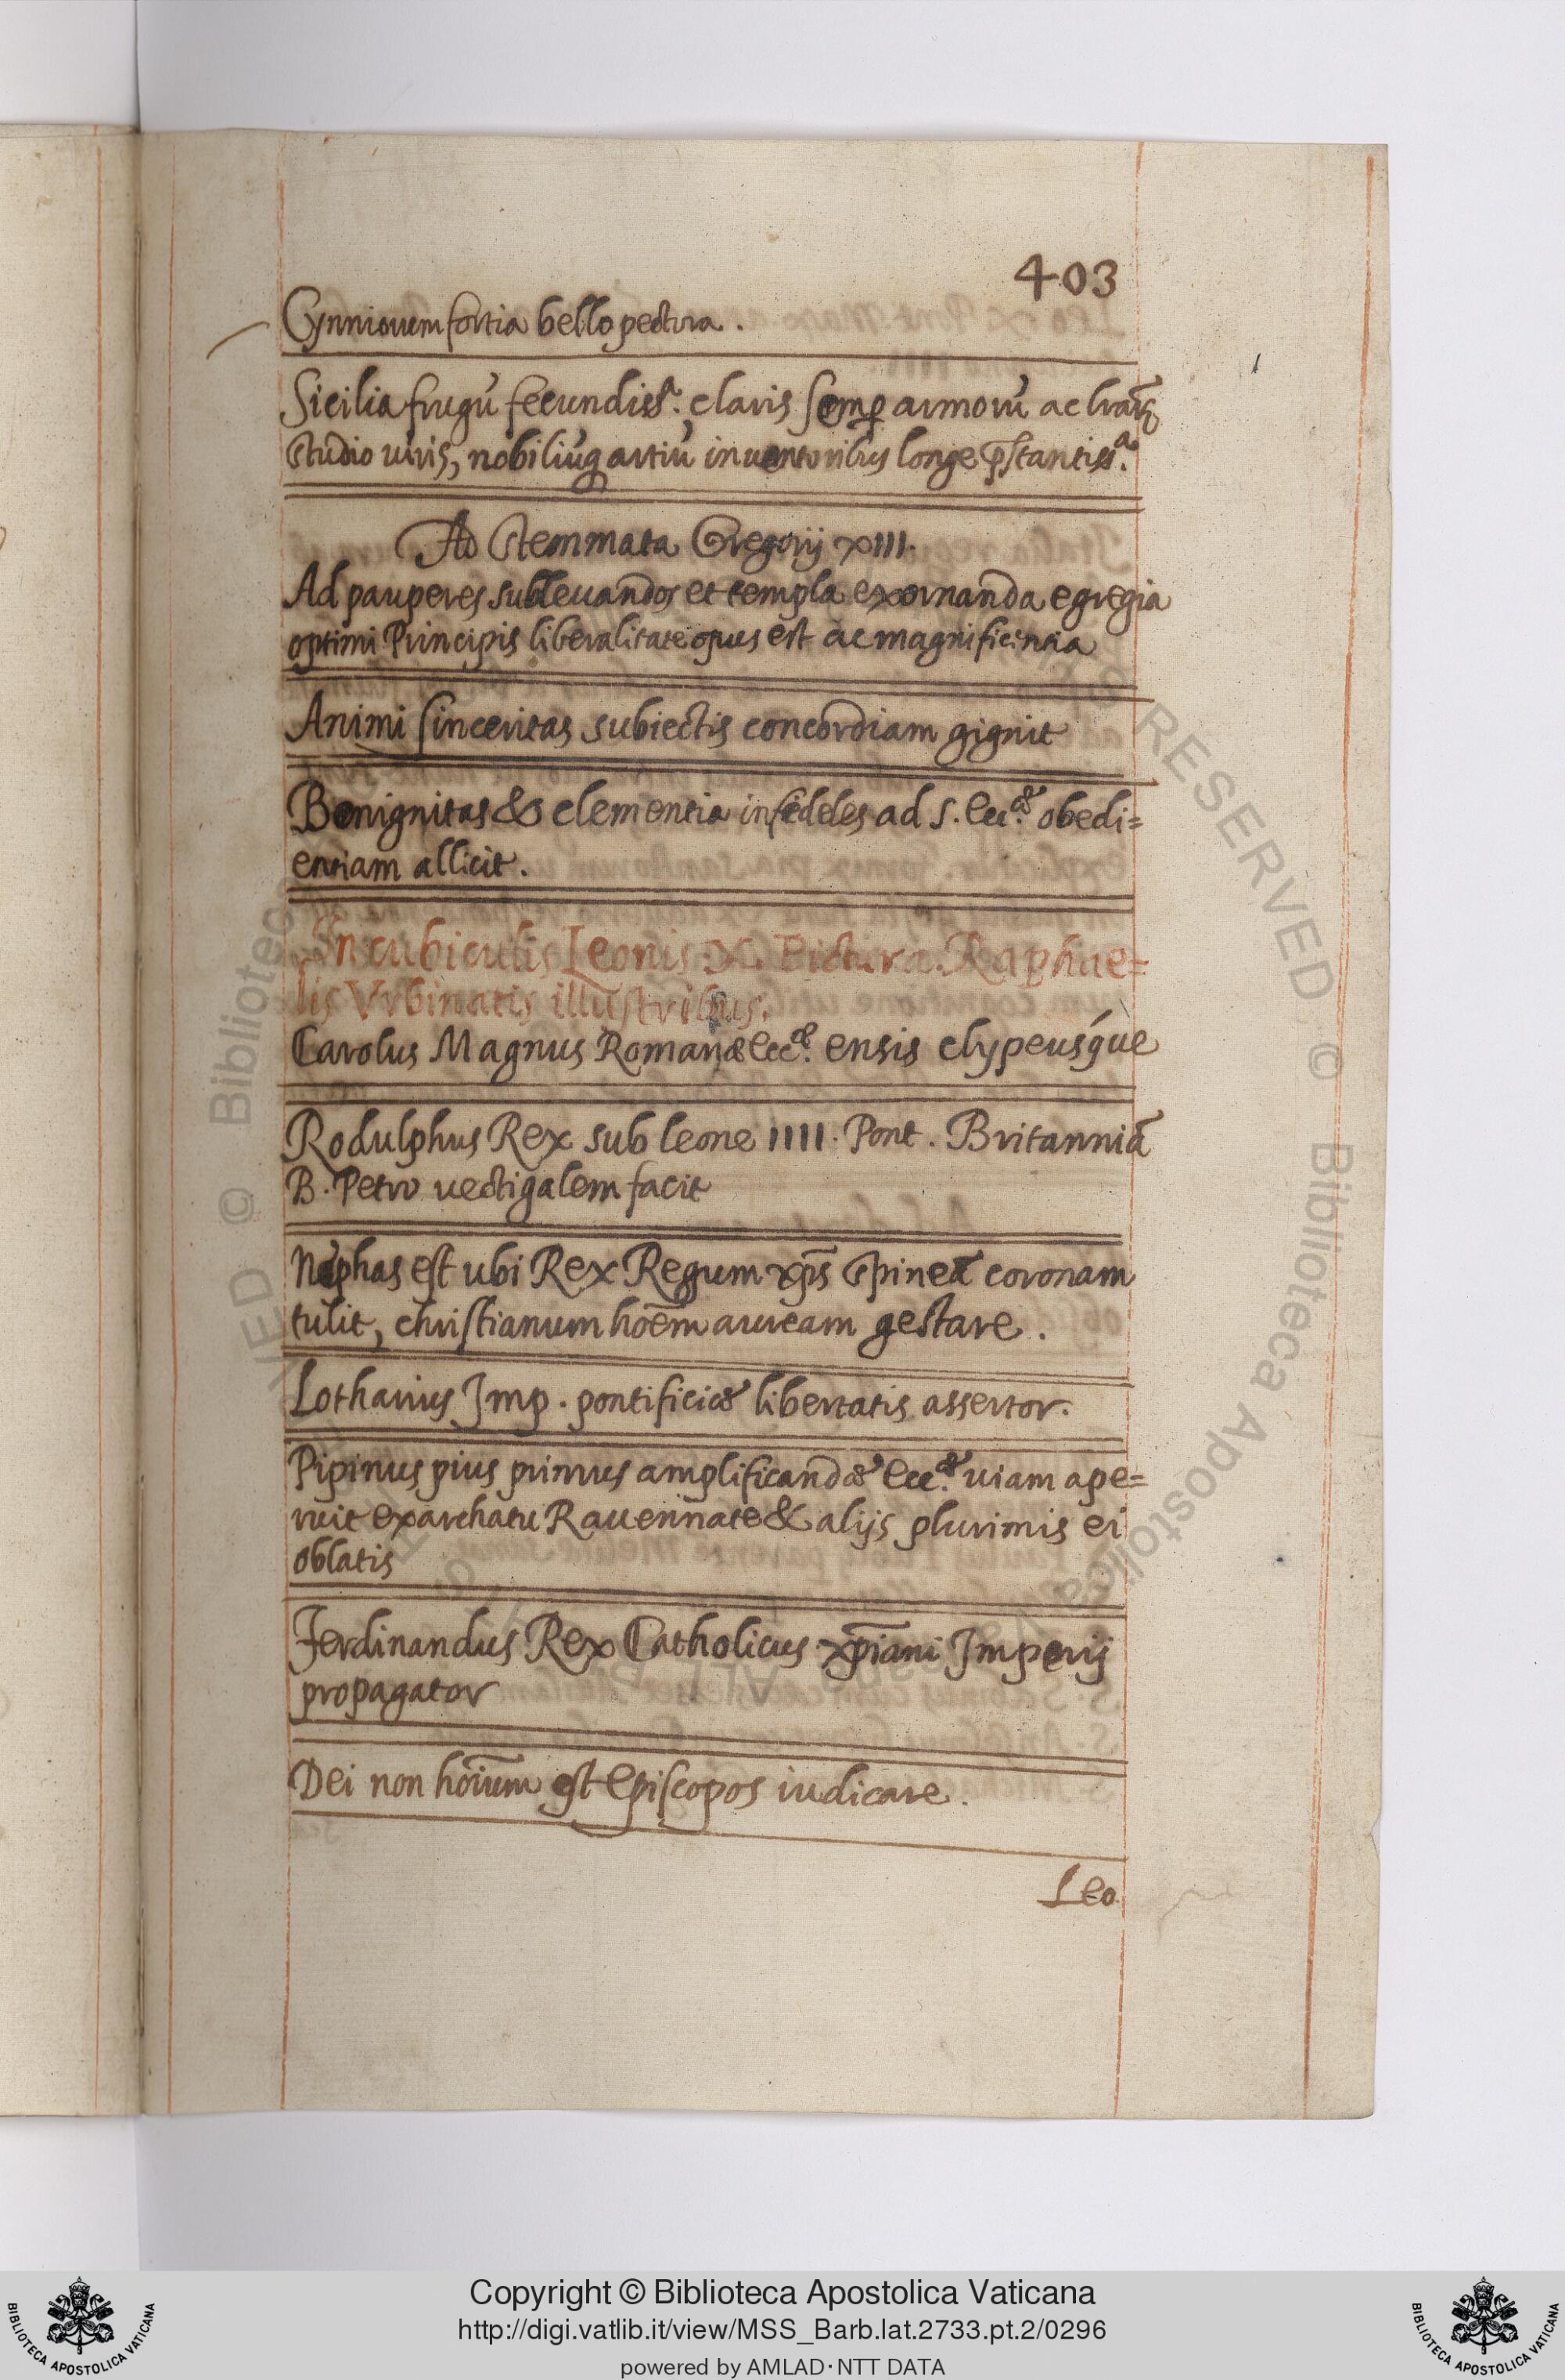 403
Cynniorum fortia bello pectora.
Sicilia frugū fecundissᵃ. claris semꝑ armorū ac lrarꝝ
studio uiris, nobiliūq artiū inuentoribus longe p̄stantissᵃ.
Ad Stemmata Gregorij XIII.
Ad pauperes subleuandos et templa exornanda egregia
optimi Principis liberalitate opus est ac magnificentia
Animi sinceritas subiectis concordiam gignit
Benignitas & clementia infideles ad S. Eccæ. obedi=
entiam allicit.
In cubiculis Leonis X. Pictura Raphae=
lis Vrbinatis illustribus.
Carolus Magnus Romanæ Eccæ. ensis clypeusq́ue
Rodulphus Rex sub leone IIII. Pont. Britanniā
B. Petro uectigalem facit
Nephas est ubi Rex Regum xp̄s spineā coronam
tulit, christianum hoēm auream gestare.
Lotharius Imp. pontificiæ libertatis assertor.
Pipinus pius primus amplificandæ Eccæ. uiam ape=
ruit exarchatu Rauennate & alijs plurimis ei
oblatis
Ferdinandus Rex Catholicus xp̄iani Imperij
propagator
Dei non hoīum est Episcopos iudicare.
Leo
Copyright © Biblioteca Apostolica Vaticana
http://digi.vatlib.it/view/MSS_Barb.lat.2733.pt.2/0296
powered by AMLAD·NTT DATA
BIBLIOTECA APOSTOLICA VATICANA
BIBLIOTECA APOSTOLICA VATICANA